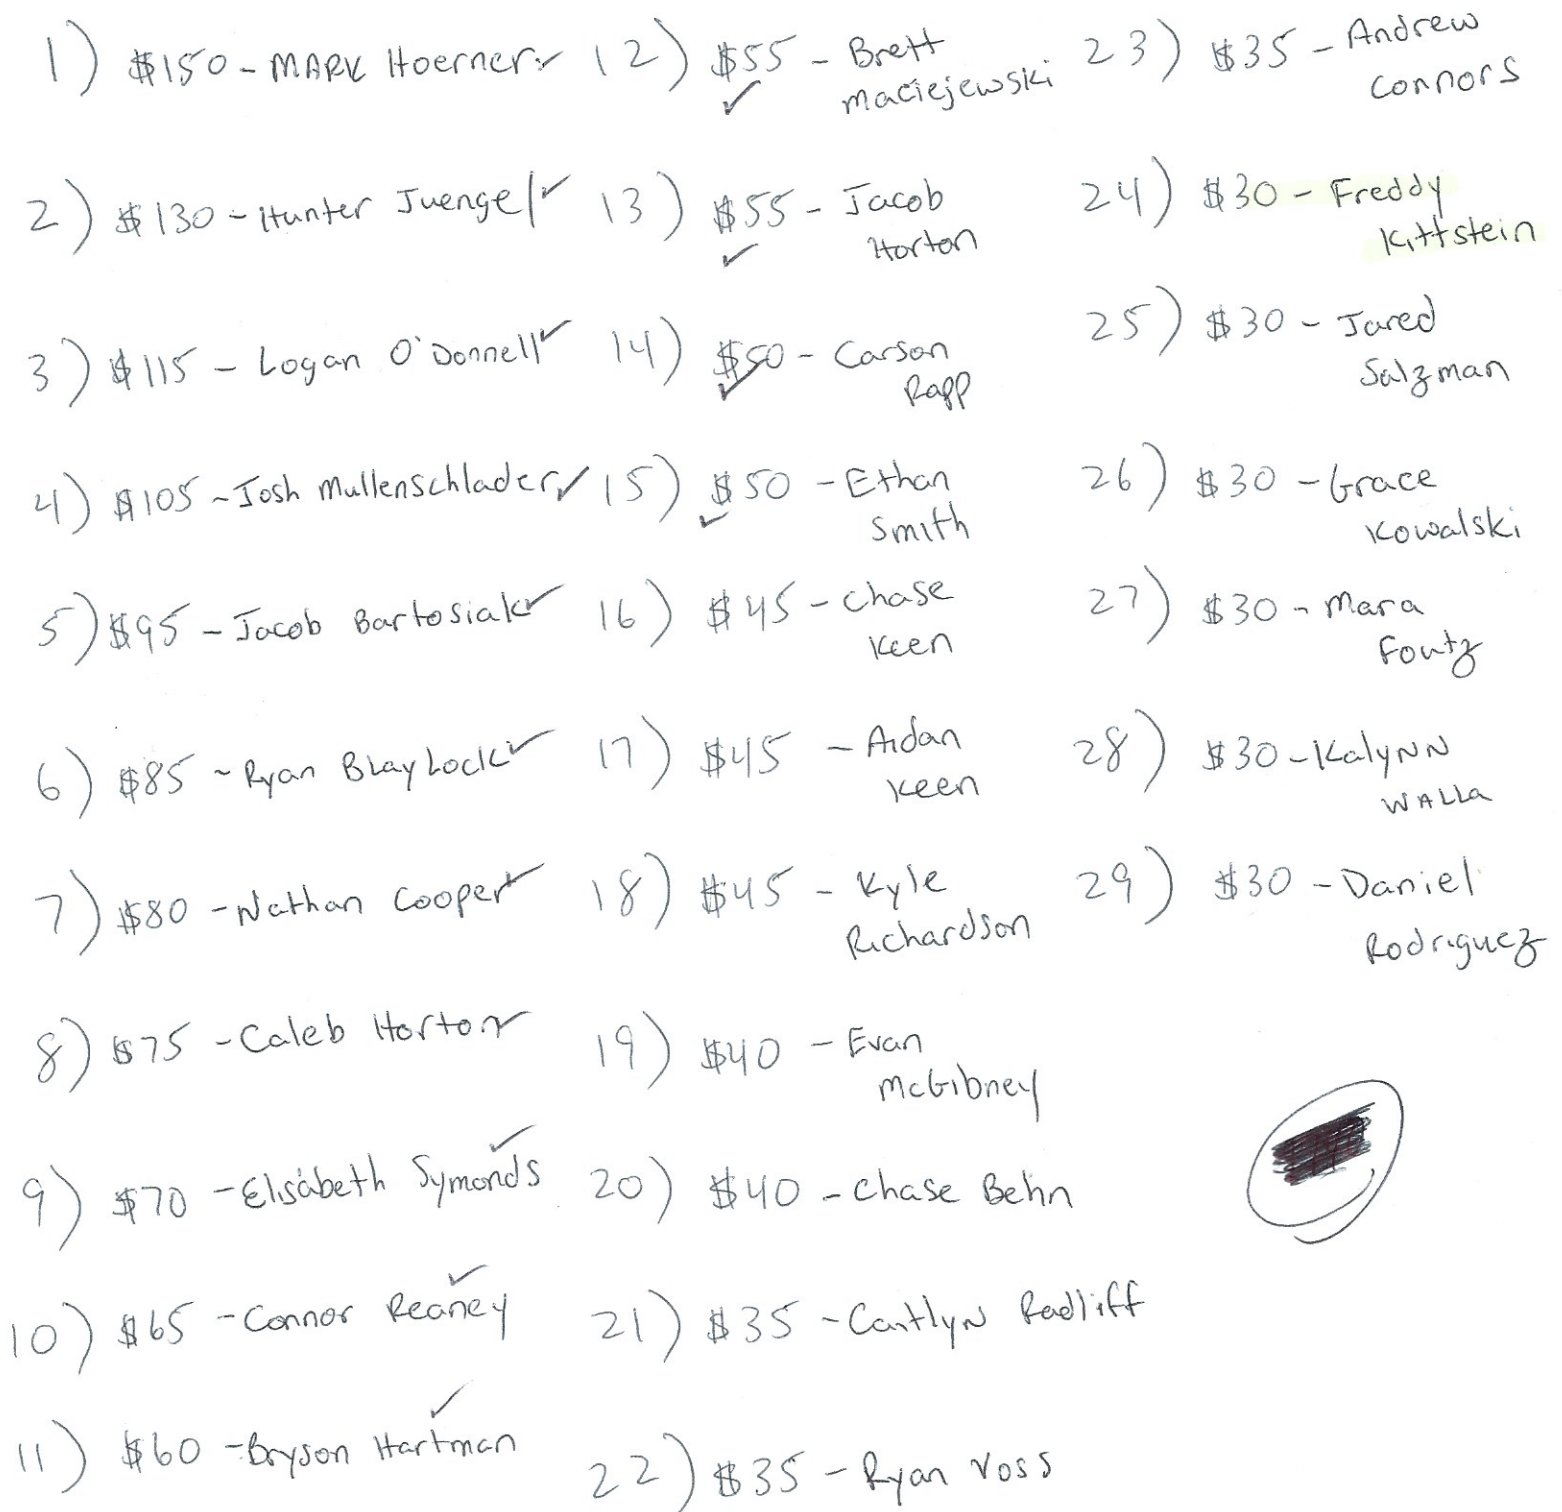 1) $150 - MARK Hoerner ✓
2) $130 - Hunter Juengel ✓
3) $115 - Logan O'Donnell ✓
4) $105 - Josh Mullenschlader ✓
5) $95 - Jacob Bartosiak ✓
6) $85 - Ryan BLayLock ✓
7) $80 - Nathan Cooper ✓
8) $75 - Caleb Horton ✓
9) $70 - Elisabeth Symonds ✓
10) $65 - Connor Reaney ✓
11) $60 - Bryson Hartman ✓
12) $55 - Brett
Maciejewski
✓
13) $55 - Jacob
Horton
✓
14) $50 - Carson
Rapp
✓
15) $50 - Ethan
Smith
✓
16) $45 - Chase
Keen
17) $45 - Aidan
Keen
18) $45 - Kyle
Richardson
19) $40 - Evan
McGibney
20) $40 - Chase Behn
21) $35 - CaitlyN Radliff
22) $35 - Ryan Voss
23) $35 - Andrew
Connors
24) $30 - Freddy
Kittstein
25) $30 - Jared
Salzman
26) $30 - Grace
Kowalski
27) $30 - Mara
Foutz
28) $30 - KalyNN
WALLa
29) $30 - Daniel
Rodriguez